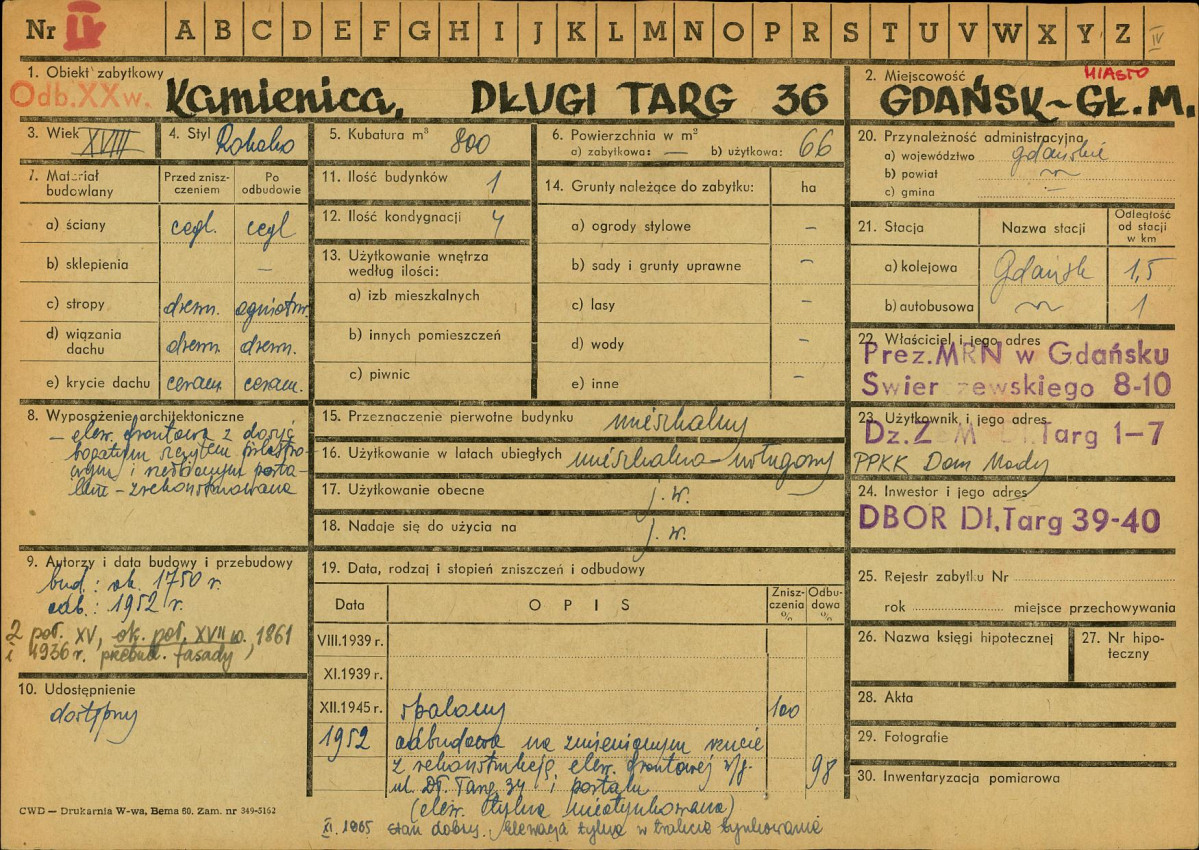 Nr II A B C D E F G H I J K L M N O P R S T U V W X Y Z IV
1. Obiekt zabytkowy
Odb. XX w. Kamienica, DŁUGI TARG 36
2. Miejscowość MIASTO
GDAŃSK – GŁ. M.
3. Wiek XVIII
4. Styl Rokoko
5. Kubatura m³ 800
6. Powierzchnia w m²
a) zabytkowa: — b) użytkowa: 66
7. Materiał budowlany
Przed zniszczeniem
Po odbudowie
a) ściany cegl. cegl
b) sklepienia —
c) stropy drewn. ogniotrw.
d) wiązania dachu drewn. drewn.
e) krycie dachu ceram. ceram.
8. Wyposażenie architektoniczne
– elew. frontowa z dosyć
bogatym szczytem pilastro-
wym i
porta-
lem – zrekonstruowana
9. Autorzy i data budowy i przebudowy
bud.: ok. 1750 r.
odb.: 1952 r.
2 poł. XV, ok. poł. XVII w. 1861
i 1936 r. przebud. fasady
10. Udostępnienie
dostępny
11. Ilość budynków 1
12. Ilość kondygnacji 4
13. Użytkowanie wnętrza
według ilości:
a) izb mieszkalnych
b) innych pomieszczeń
c) piwnic
14. Grunty należące do zabytku: ha
a) ogrody stylowe –
b) sady i grunty uprawne –
c) lasy –
d) wody –
e) inne –
15. Przeznaczenie pierwotne budynku mieszkalny
16. Użytkowanie w latach ubiegłych mieszkalno-usługowy
17. Użytkowanie obecne j. w.
18. Nadaje się do użycia na j. w.
19. Data, rodzaj i stopień zniszczeń i odbudowy
Data OPIS Zniszczenia % Odbudowa %
VIII.1939 r.
XI.1939 r.
XII.1945 r. spalony 100
1952 odbudowa na zmienionym rzucie
z rekonstrukcją elew. frontowej 98
ul. Dł. Targ i portalu
(elew. tylna nieotynkowana)
XI. 1965 stan dobry. Elewacja tylna w trakcie tynkowania
20. Przynależność administracyjna
a) województwo gdańskie
b) powiat
c) gmina —
21. Stacja Nazwa stacji Odległość od stacji w km
a) kolejowa Gdańsk 1,5
b) autobusowa 1
22. Właściciel i jego adres
Prez. MRN w Gdańsku
Swierczewskiego 8-10
23. Użytkownik i jego adres
Dz. Z M Dł. Targ 1–7
PPKK Dom Mody
24. Inwestor i jego adres
DBOR Dł, Targ 39-40
25. Rejestr zabytku Nr
rok miejsce przechowywania
26. Nazwa księgi hipotecznej
27. Nr hipoteczny
28. Akta
29. Fotografie
30. Inwentaryzacja pomiarowa
CWD — Drukarnia W-wa, Bema 60, Zam. nr 349-5162